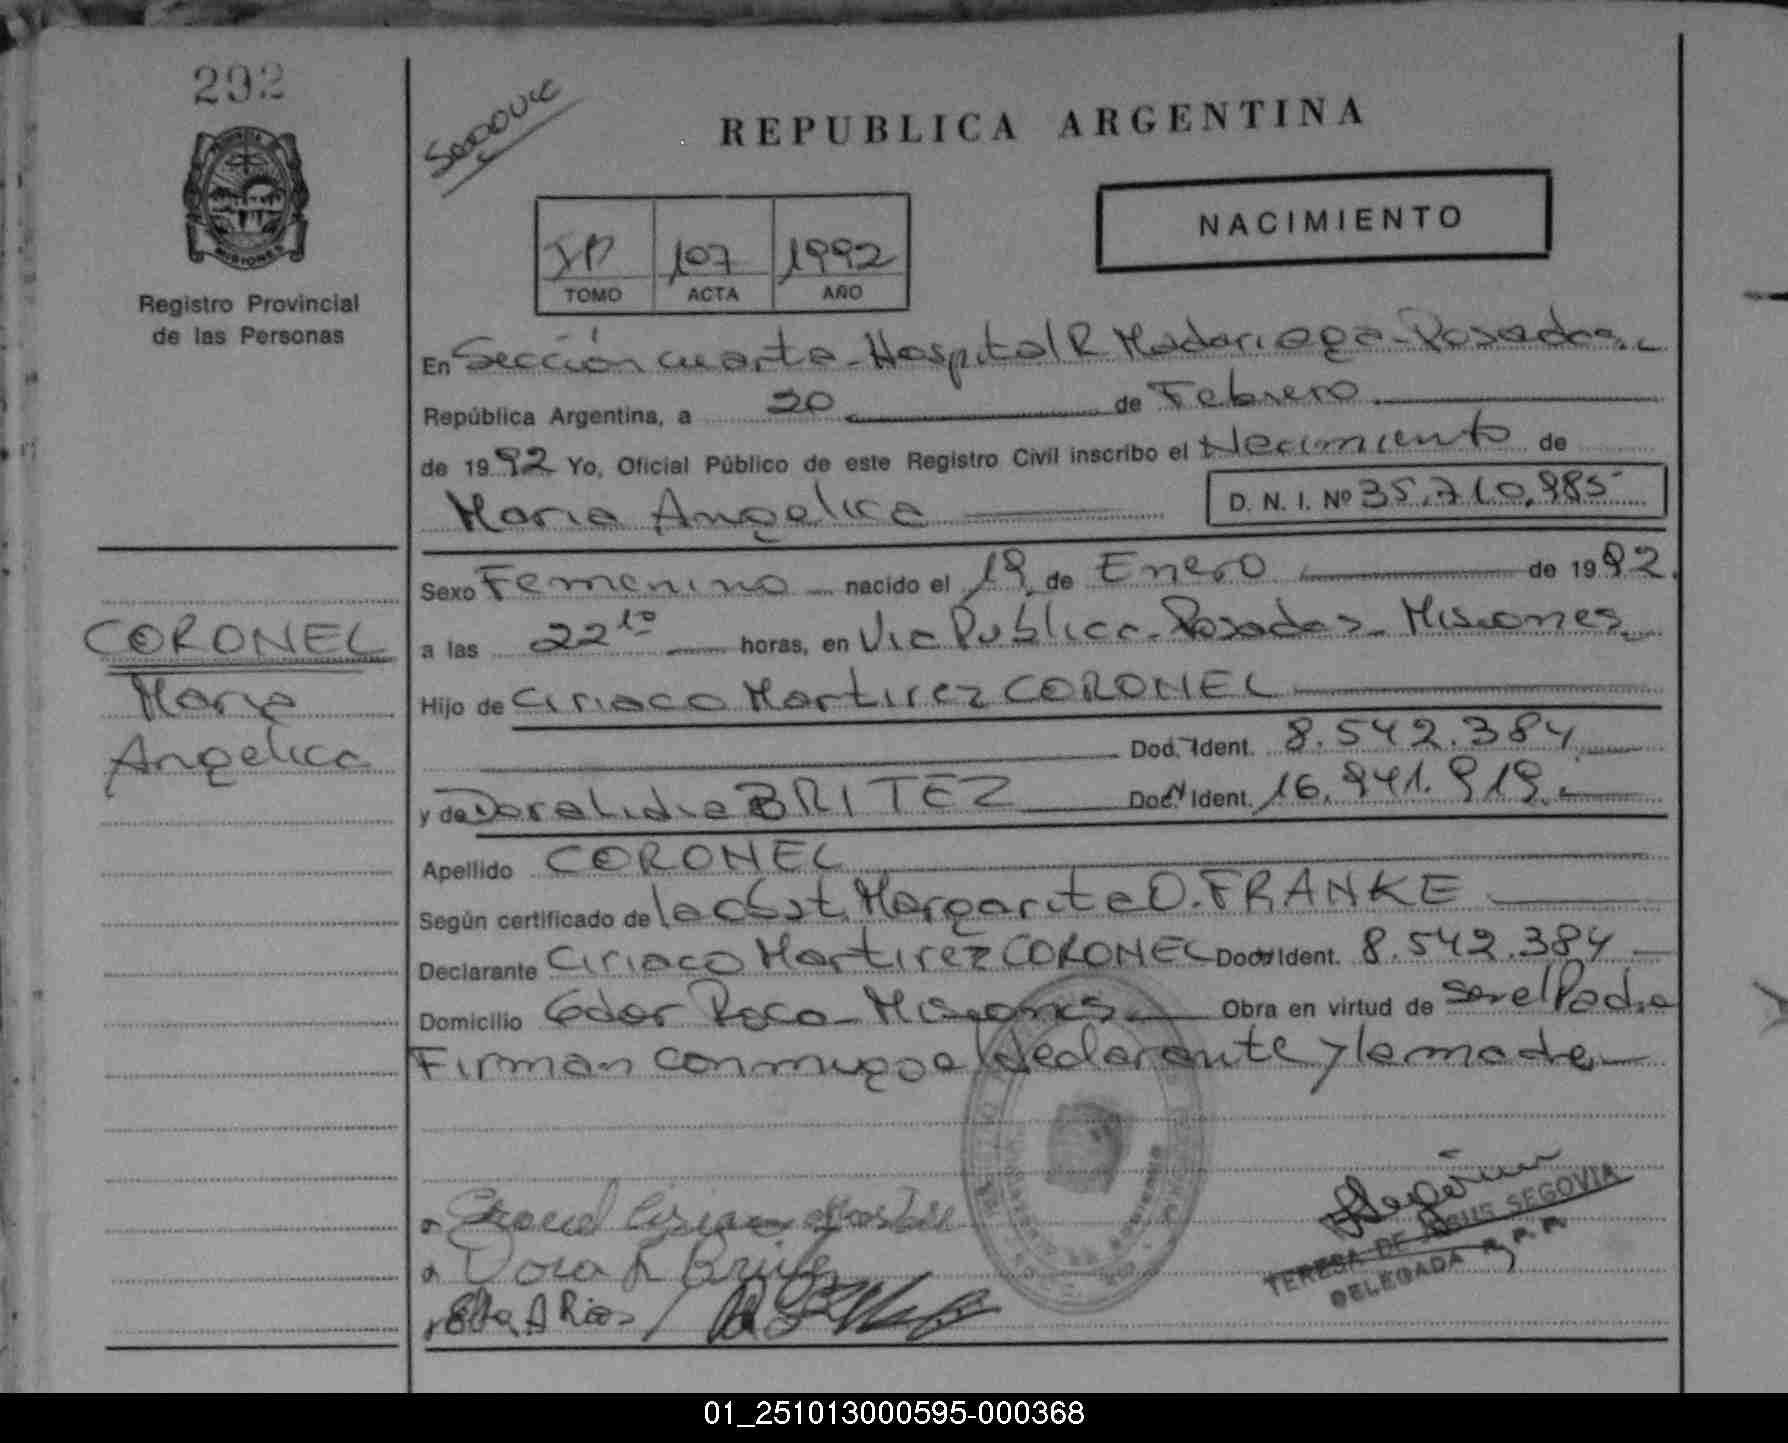 292
REPUBLICA ARGENTINA
NACIMIENTO
107 1992
TOMO ACTA AÑO
Registro Provincial
de las Personas
En Sección cuarta - Hospital R Madariaga - Posadas.-
República Argentina, a 20 de Febrero
de 1992 Yo, Oficial Público de este Registro Civil inscribo el Nacimiento de
Maria Angelica D. N. I. Nº 35.710.985
Sexo Femenino nacido el 19 de Enero de 1992.
a las 22 10 horas, en Via Publica - Posadas - Misiones
Hijo de Ciriaco Martirez CORONEL
Doc. Ident. 8.542.384
y de Dora Lidia BRITEZ Doc. Ident. 16.941.919.-
CORONEL
Maria
Angelica
Apellido CORONEL
Según certificado de la Obst. Margarita O. FRANKE
Declarante Ciriaco Martirez CORONEL Doc. Ident. 8.542.384
Domicilio Cdor Roca - Misiones.- Obra en virtud de ser el Padre
Firman conmigo el declarante y la madre
Dora L Britez
TERESA DE JESUS SEGOVIA
DELEGADA R. P. P.
01_251013000595-000368